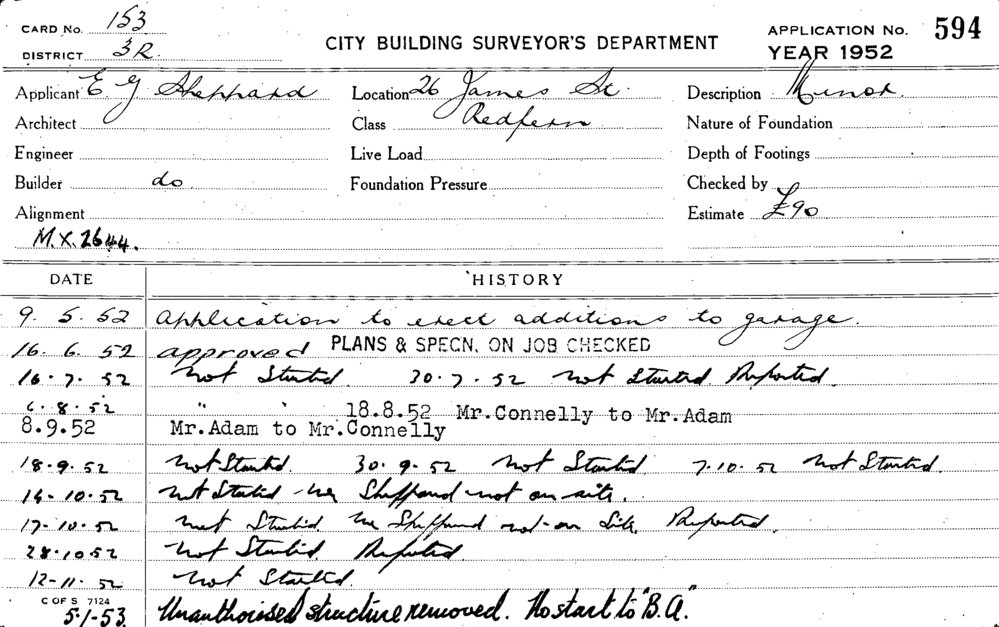 CARD No. 153 CITY BUILDING SURVEYOR'S DEPARTMENT APPLICATION No. 594
DISTRICT 3R YEAR 1952
Applicant E G Sheppard Location 26 James St. Description Minor
Architect Class Redfern Nature of Foundation
Engineer Live Load Depth of Footings
Builder do Foundation Pressure Checked by
Alignment Estimate £90
M.X. 2644.
DATE HISTORY
9. 5. 52 Application to erect additions to garage.
16. 6. 52 approved PLANS & SPECN. ON JOB CHECKED
16. 7. 52 Not Started. 30. 7. 52 Not Started Reported.
6. 8. 52 " " 18.8.52 Mr.Connelly to Mr.Adam
8.9.52 Mr.Adam to Mr.Connelly
18. 9. 52 Not Started. 30. 9. 52 Not Started 7.10. 52 Not Started.
14. 10. 52 Not Started Mr Sheppard not on site.
17. 10. 52 Not Started Mr Sheppard not on Site. Reported.
28. 10 52 Not Started Reported
12-11. 52 Not Started.
C OF S 7124
5-1-53. Unauthorised structure removed. No start to "B.A".